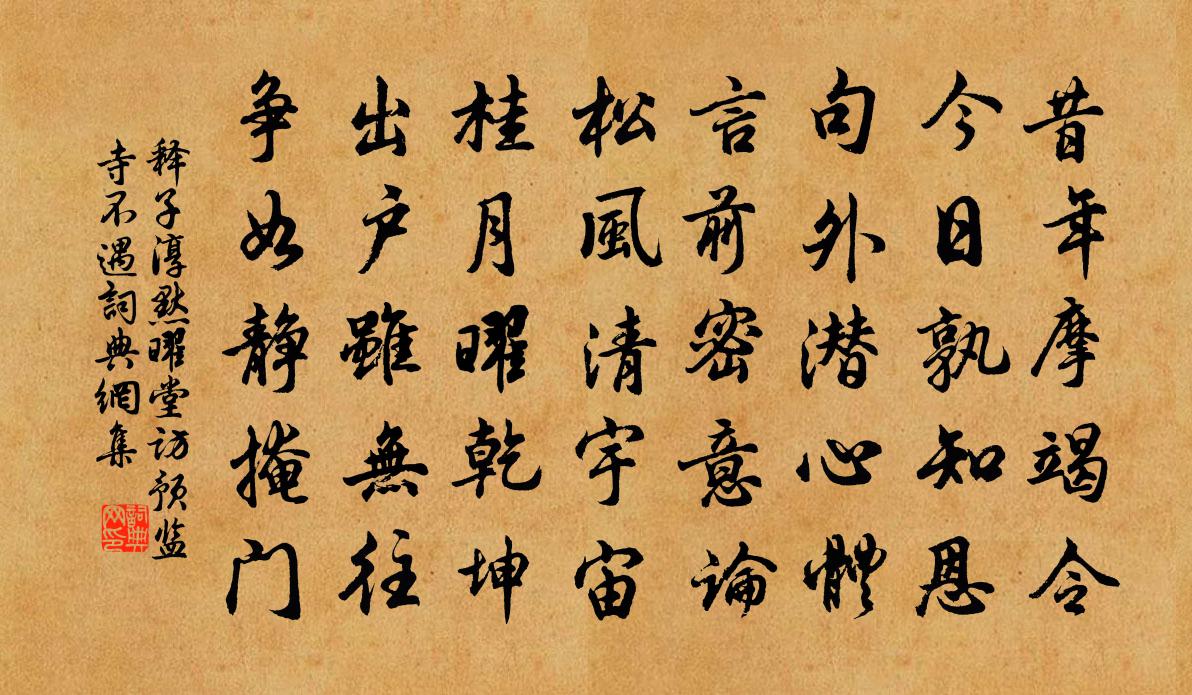 昔年摩竭令
今日孰知恩
句外潜心體
言前密意論
松風清宇宙
桂月曜乾坤
出户雖無往
争如靜掩门
释子淳默曜堂访预监
寺不遇詞典網集
詞典网印